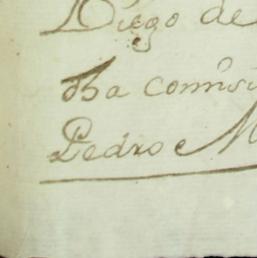 Diego de
dha comisi
Pedro M